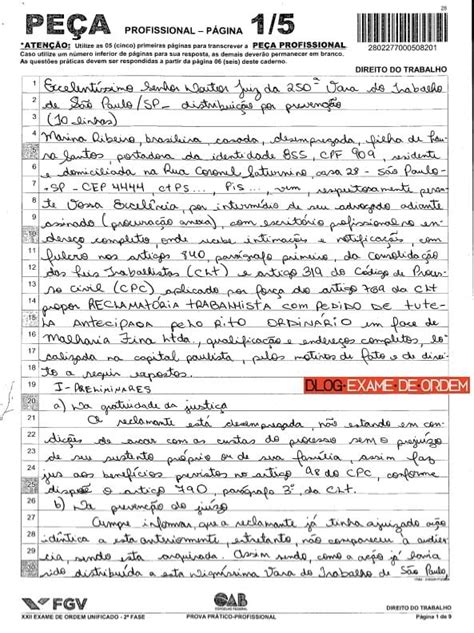 28
PEÇA PROFISSIONAL – PÁGINA 1/5
*ATENÇÃO: Utilize as 05 (cinco) primeiras páginas para transcrever a PEÇA PROFISSIONAL
Caso utilize um número inferior de páginas para sua resposta, as demais deverão permanecer em branco.
As questões práticas devem ser respondidas a partir da página 06 (seis) deste caderno.
2802277000508201
DIREITO DO TRABALHO
1 Excelentíssimo Senhor Doutor Juiz da 250ª Vara do Trabalho
2 de São Paulo/SP – distribuição por prevenção
3 (10 linhas)
4 Marina Ribeiro, brasileira, casada, desempregada, filha de
5 Santos, portadora da identidade 855, CPF 909, residente
6 e domiciliada na Rua Coronel Saturnino, casa 28 - São Paulo-
7 -SP - CEP 4444, CTPS..., Pis..., vem, respeitosamente peran-
8 te Vossa Excelência, por intermédio de seu advogado adiante
9 assinado (procuração anexa), com escritório profissional no en-
10 dereço completo, onde recebe intimações e notificações, com
11 fulcro nos artigos 840, parágrafo primeiro, da Consolidação
12 das Leis Trabalhistas (CLT) e artigo 319 do Código de Proces-
13 so Civil (CPC) aplicado por força do artigo 769 da CLT
14 propor RECLAMATÓRIA TRABALHISTA COM PEDIDO DE TUTE-
15 LA ANTECIPADA PELO RITO ORDINÁRIO em face de
16 Malharia Fina Ltda, qualificação e endereços completos, lo-
17 calizada na capital paulista, pelos motivos de fato e de direi-
18 to a seguir expostos.
19 I - PRELIMINARES
BLOG-EXAME-DE-ORDEM
20 a) Da gratuidade da justiça
21 A reclamante está desempregada, não estando em con-
22 dições de arcar com as custas do processo sem o prejuízo
23 de seu sustento próprio ou de sua família, assim faz
24 jus aos benefícios previstos no artigo 98 do CPC, conforme
25 dispõe o artigo 790, parágrafo 3º da CLT.
26 b) Da prevenção do juízo
27 Cumpre informar, que a reclamante já tinha ajuizado ação
28 idêntica a esta anteriormente, entretanto, não compareceu a audiên-
29 cia, sendo esta arquivada. Assim sendo, como a ação já havia
30 sido distribuída a esta Digníssima Vara do Trabalho de São Paulo,
FGV
OAB
DIREITO DO TRABALHO
XXII EXAME DE ORDEM UNIFICADO - 2ª FASE
PROVA PRÁTICO-PROFISSIONAL
Página 1 de 9